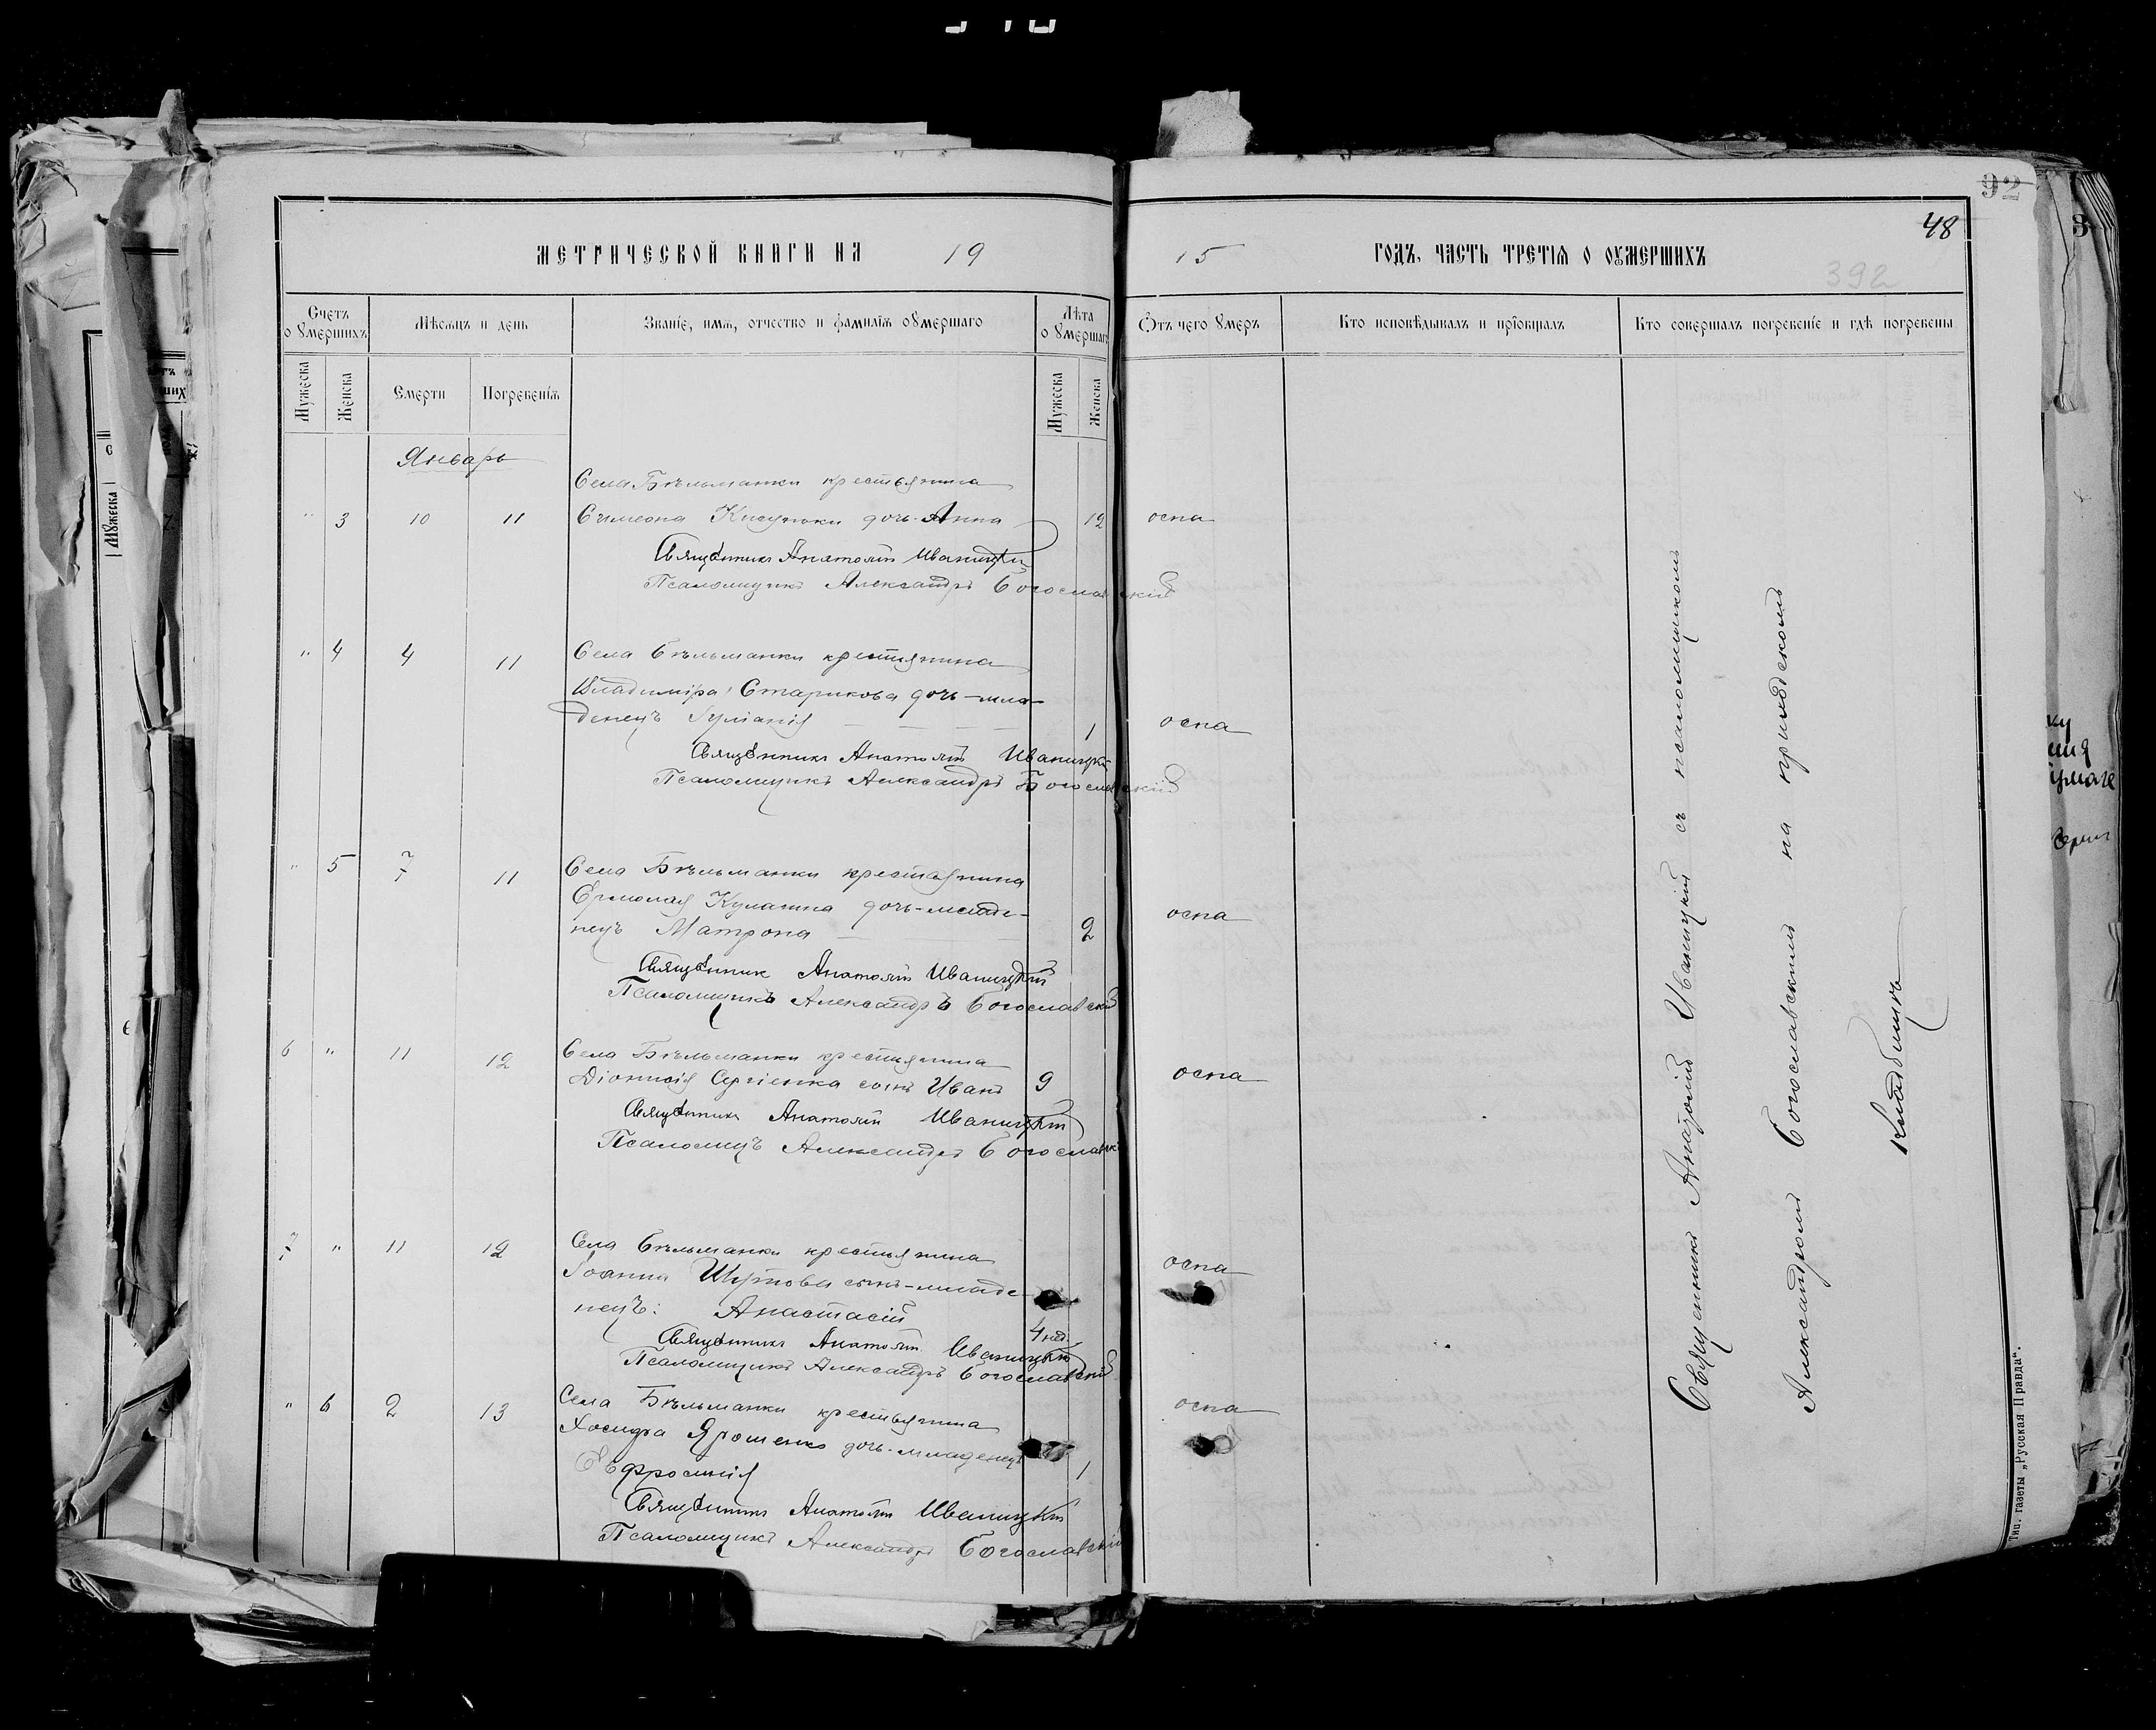 92
48
МЕТРИЧЕСКОЙ КНИГИ НА 19 15 ГОДЪ, ЧАСТЬ ТРЕТІѦ О ОУМЕРШИХЪ
392
Счетъ о Умершихъ
Мѣсяцъ и день
Званіе, имѧ, отчество и фамиліѧ оумершаго
Лѣта о Умершаго
Ѿтъ чего Умеръ
Кто исповѣдывалъ и пріобщалъ
Кто совершалъ погребеніе и гдѣ погребены
Мужеска
Женска
Смерти
Погребеніѧ
Мужеска
Женска
Январь
Села Бѣльманки крестьянина
" 3 10 11 Сѵмеона дочь Анна 12 оспа
Священникъ Анатолій Иваницкій
Псаломщикъ Александръ Богославскій
" 4 4 11 Села Бѣльманки крестьянина
Владиміра Старикова дочь-мла-
денецъ Іуліанія 1 оспа
Священникъ Анатолій Иваницкій
Псаломщикъ Александръ Богославскій
" 5 7 11 Села Бѣльманки крестьянина
Ермолая Кулагина дочь-младе-
нецъ Матрона 2 оспа
Священник Анатолій Иваницкій
Псаломщикъ Александръ Богославскій
6 " 11 12 Села Бѣльманки крестьянина
Діонисія Сергіенка сынъ Иванъ 9 оспа
Священникъ Анатолій Иваницкій
Псаломщъ Александръ Богославскі
7 " 11 12 Села Бѣльманки крестьянина
Іоанна сынъ-младе-
нецъ: Анастасій 4 нед. оспа
Священникъ Анатолій Иваницкій
Псаломщикъ Александръ Богославскій
" 6 2 13 Села Бѣльманки крестьянина
Ярошенко дочь-младенецъ
Евфросинія 1 оспа
Священникъ Анатолій Иваницкій
Псаломщикъ Александръ Богославскій
Священникъ Анатолій Иваницкій съ псаломщикомъ
Александромъ Богославскимъ на приходскомъ
кладбищѣ
Тип. газеты „Русская Правда“.